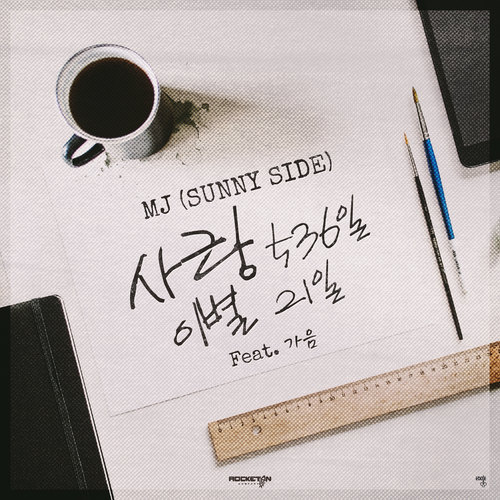 MJ (SUNNY SIDE)
사랑 436일
이별 21일
Feat. 가음
ROCKETAN